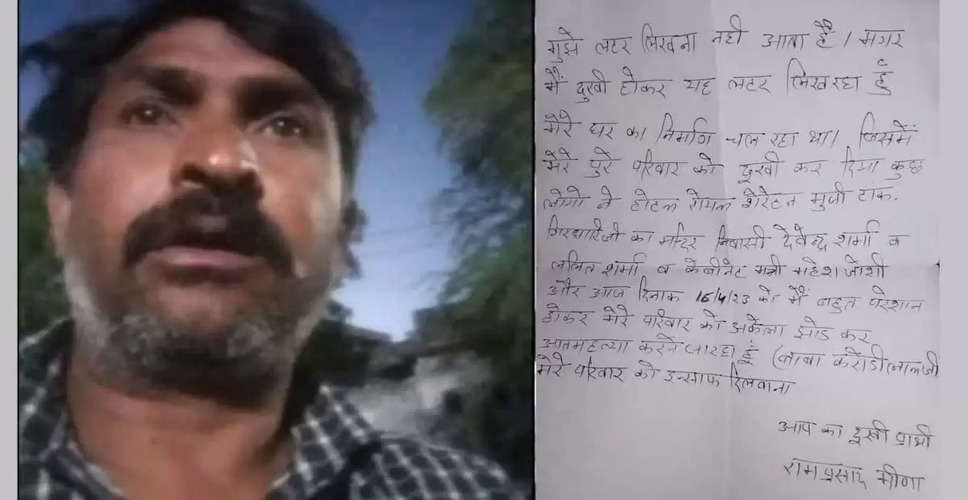 मुझे लटर लिखना नही आता है। मगर
मैं दुखी होकर यह लटर लिख रहा हुँ
मेरे घर का निर्माण चल रहा था। जिसमें
मेरे पुरे परिवार को दूखी कर दिया कुछ
लोगो ने होटल रोयल शेरेटन मुन्जी टाक.
गिरधारीजी का मन्दिर निवासी देवेन्द्र शर्मा व
ललित शर्मा व केबीनेट मन्त्री महेश जोशी
और आज दिनाक 16/4/23 को मैं बहुत परेशान
होकर मेरे परिवार को अकेला छोड कर
आतमहत्या करने जा रहा हूँ (बाबा करोडीलालजी
मेरे परिवार को इन्साफ दिलवाना
आप का दूखी प्रार्थी
रामप्रसाद मीणा